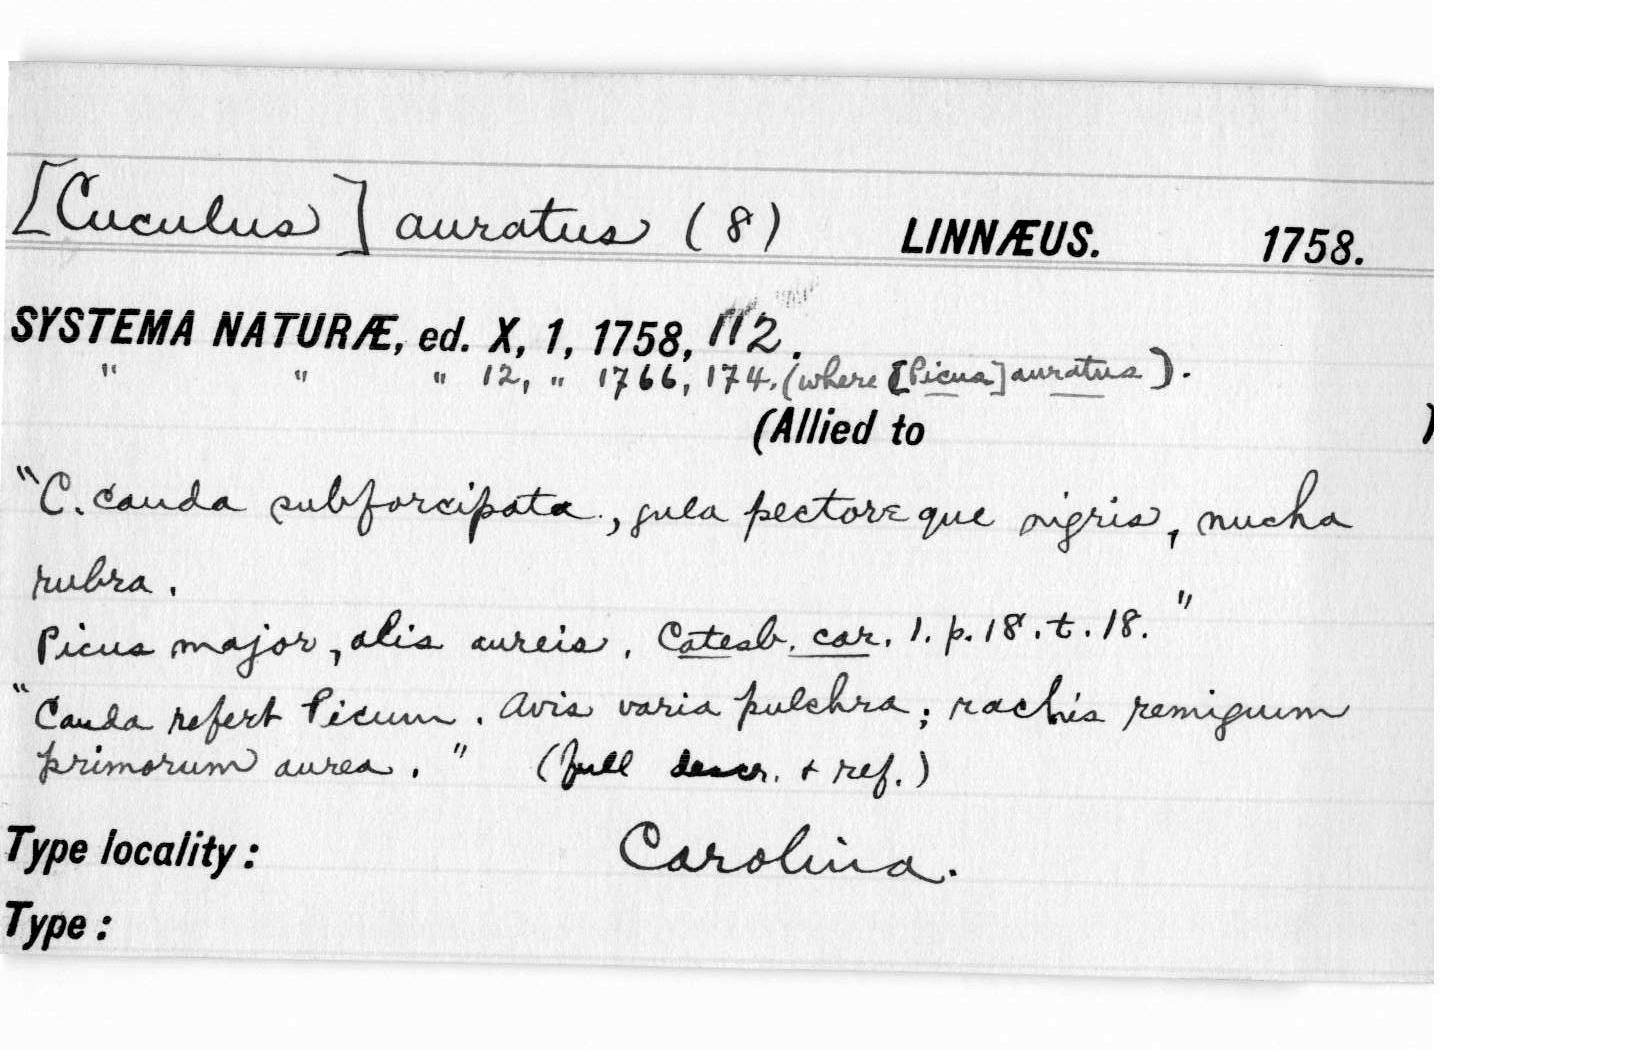 [Cuculus] auratus (8) LINNÆUS. 1758.
SYSTEMA NATURÆ, ed. X, 1, 1758, 112.
" " " 12, " 1766, 174. (where [Picus] auratus).
(Allied to )
"C. cauda subforcipata, gula pectoreque nigris, nucha
rubra.
Picus major, alis aureis. Catesb. car. 1. p. 18. t. 18."
"Cauda refert Picum. Avis varia pulchra; rachis remigum
primorum aurea." (full descr. + ref.)
Type locality: Carolina.
Type: